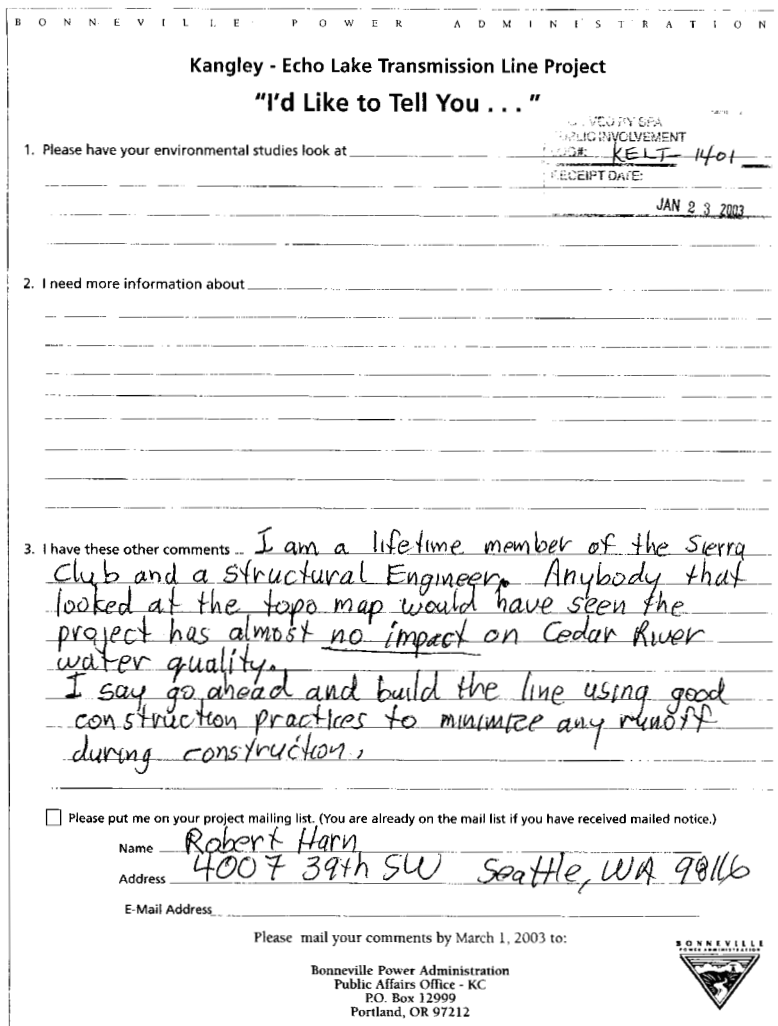 BONNEVILLE POWER ADMINISTRATION
Kangley - Echo Lake Transmission Line Project
"I'd Like to Tell You . . . "
PUBLIC INVOLVEMENT
1. Please have your environmental studies look at
KELT 1401
RECEIPT DATE:
JAN 23 2003
2. I need more information about
3. I have these other comments I am a lifetime member of the Sierra
Club and a Structural Engineer. Anybody that
looked at the topo map would have seen the
project has almost no impact on Cedar River
water quality.
I say go ahead and build the line using good
construction practices to minimize any runoff
during construction.
Please put me on your project mailing list. (You are already on the mail list if you have received mailed notice.)
Name Robert Harn
Address 4007 39th SW Seattle, WA 98116
E-Mail Address
Please mail your comments by March 1, 2003 to:
Bonneville Power Administration
Public Affairs Office - KC
P.O. Box 12999
Portland, OR 97212
BONNEVILLE
POWER ADMINISTRATION